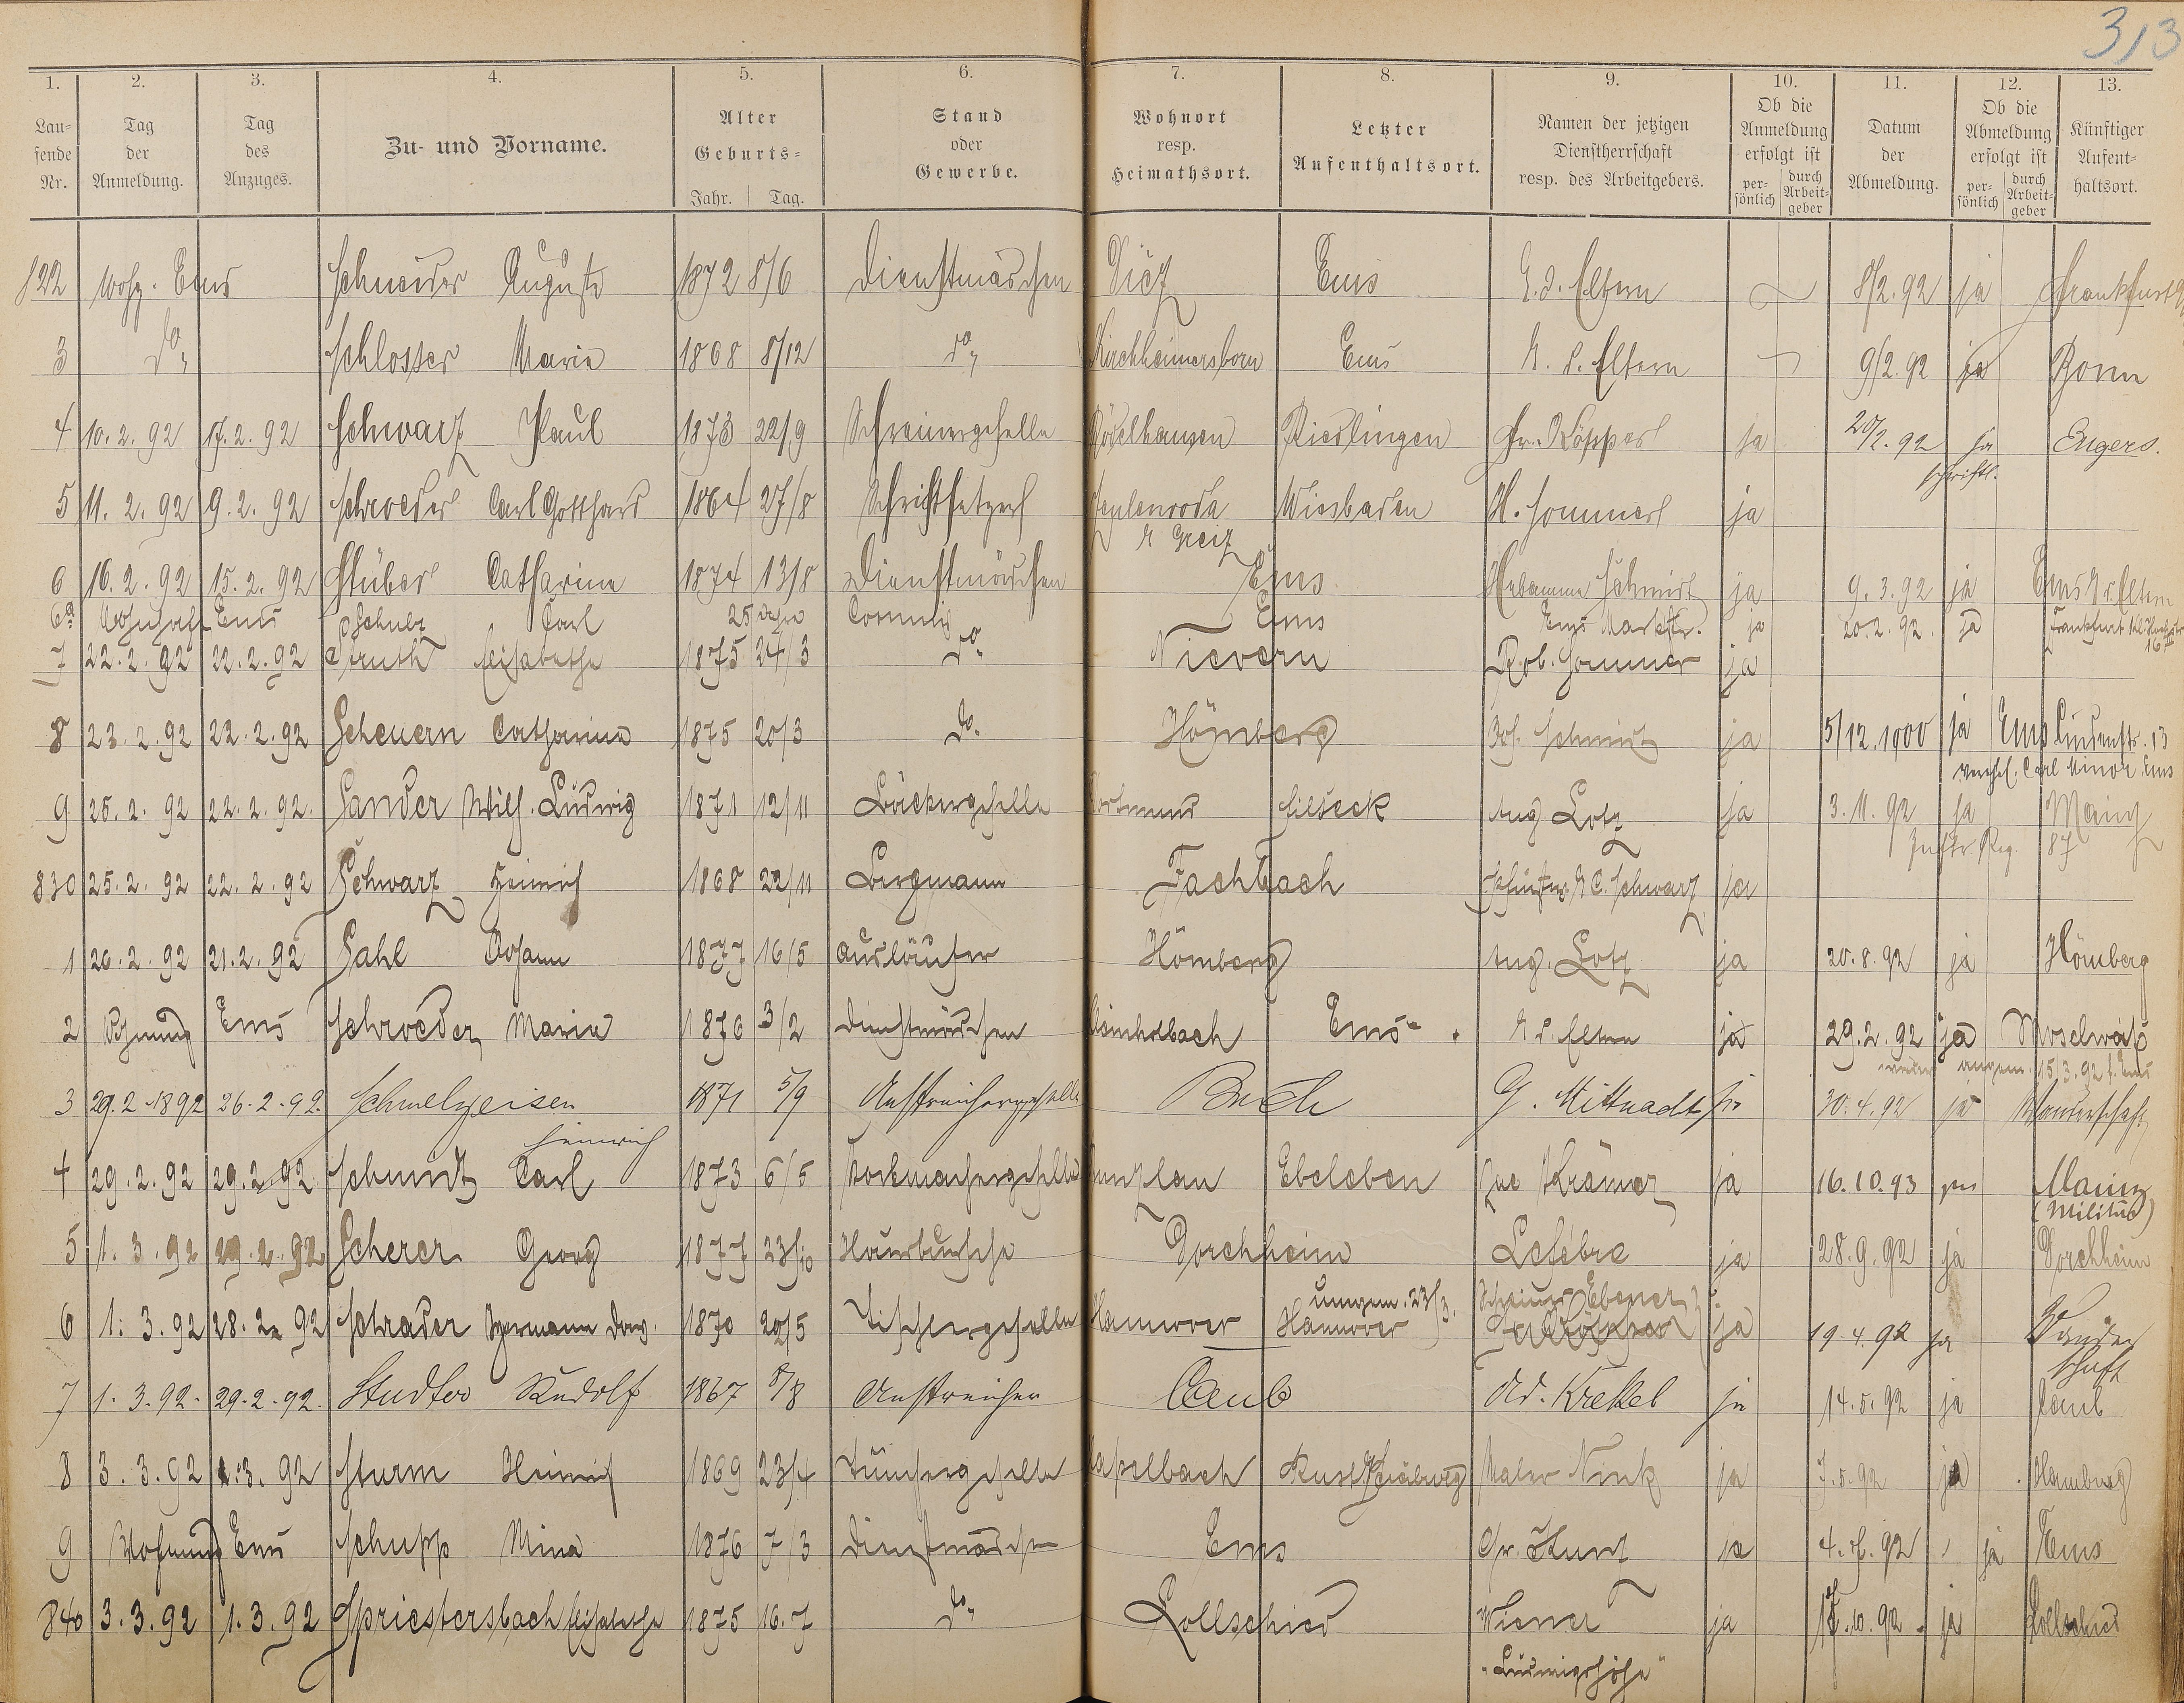 313
1. 2. 3. 4. 5. 6. 7. 8. 9. 10. 11. 12. 13.
Lau-
fende
Nr.
Tag
der
Anmeldung.
Tag
des
Anzuges.
Zu- und Vorname.
Alter
Geburts-
Jahr. Tag.
Stand
oder
Gewerbe.
Wohnort
resp.
Heimathsort.
Letzter
Aufenthaltsort.
Namen der jetzigen
Dienstherrschaft
resp. des Arbeitgebers.
Ob die
Anmeldung
erfolgt ist
per-
sönlich
durch
Arbeit-
geber
Datum
der
Abmeldung.
Ob die
Abmeldung
erfolgt ist
per-
sönlich
durch
Arbeit-
geber
Künftiger
Aufent-
haltsort.
822 Ems Schneider Auguste 1872 8/6 Dienstmädchen Diez Ems Eltern 8/2.92 ja Frankfurt
3 do Schlosser Marie 1868 8/12 do Kirchheimersborn Ems Eltern 9/2.92 ja Bonn
4 10.2.92 17.2.92 Schwarz Paul 1873 22/9 Schreinergeselle Rieslingen Fr. Köpper ja 20/2.92 ja Engers.
schriftl.
5 11.2.92 9.2.92 Schroeder Carl Gotthard 1864 27/8 Schriftsetzer Zeulenroda Wiesbaden H. Sommer ja
Greiz
6 16.2.92 15.2.92 Stüber Catharina 1874 13/8 Dienstmädchen Ems Hebamme Schmidt ja 9.3.92 ja Ems Eltern
6a Wohnhaft Ems Schulz Carl Commis Ems Ems Marktstr. ja 20.2.92. ja Frankfurt
7 22.2.92 22.2.92 Struth Elisabethe 1875 24/3 do. Nievern Rob. Sommer ja
8 23.2.92 22.2.92 Scheuern Catharina 1875 20/3 do. Hömberg Joh. Schmidt ja 5/12.1900 ja Ems Lindenstr. 13
Carl Minor Ems
9 25.2.92 22.2.92. Sander Wilh. Ludwig 1871 12/11 Bäckergeselle Dortmund Aug Lotz ja 3.11.92 ja Mainz
Inftr Reg. 87
830 25.2.92 22.2.92 Schwarz Heinrich 1868 22/11 Bergmann Fachbach C. Schwarz ja
1 26.2.92 21.2.92 Sahl Johann 1877 16/5 Ausläufer Hömberg Aug. Lotz ja 20.8.92 ja Hömberg
2 Wohnung Ems Schroeder Marie 1876 3/2 Dienstmädchen Ems Eltern ja 29.2.92 ja Moselweiß
wieder angem. 15/3.92 f. Ems
3 29.2.1892 26.2.92. Schmelzeisen 1871 5/9 Anstreichergeselle Buch G. Mittnacht ja 30.4.92 ja Wanderschaft
Heinrich
4 29.2.92 29.2.92 Schmidt Carl 1873 6/5 Ebeleben Krämer ja 16.10.93 Mainz
(Militär)
5 1.3.92 29.2.92 Scherer Georg 1877 23/10 Hausbursche Horchheim Lefébre ja 28.9.92 ja Horchheim
umgem. 23/3. Schreiner Ebener
6 1.3.92 28.2.92 Schrader Hermann 1870 20/5 Tischlergeselle Hannover Hannover ja 19.4.92 ja Wander
schaft
7 1.3.92. 29.2.92. Studter Rudolf 1867 8/8 Anstreicher Caub Ad. Krekel ja 14.5.92 ja Caub
8 3.3.92 1.3.92 Sturm Heinrich 1869 23/4 Tünchergeselle Maler Nink ja 7.5.92 ja Hamburg
9 Wohnung Ems Schupp Mina 1876 7/3 Dienstmädchen Ems ja 4.92 ja Ems
840 3.3.92 1.3.92 Spriestersbach Elisabethe 1875 16.7 do. Lollschied Wiener ja 10.92. ja Lollschied
"Ludwigshöhe"